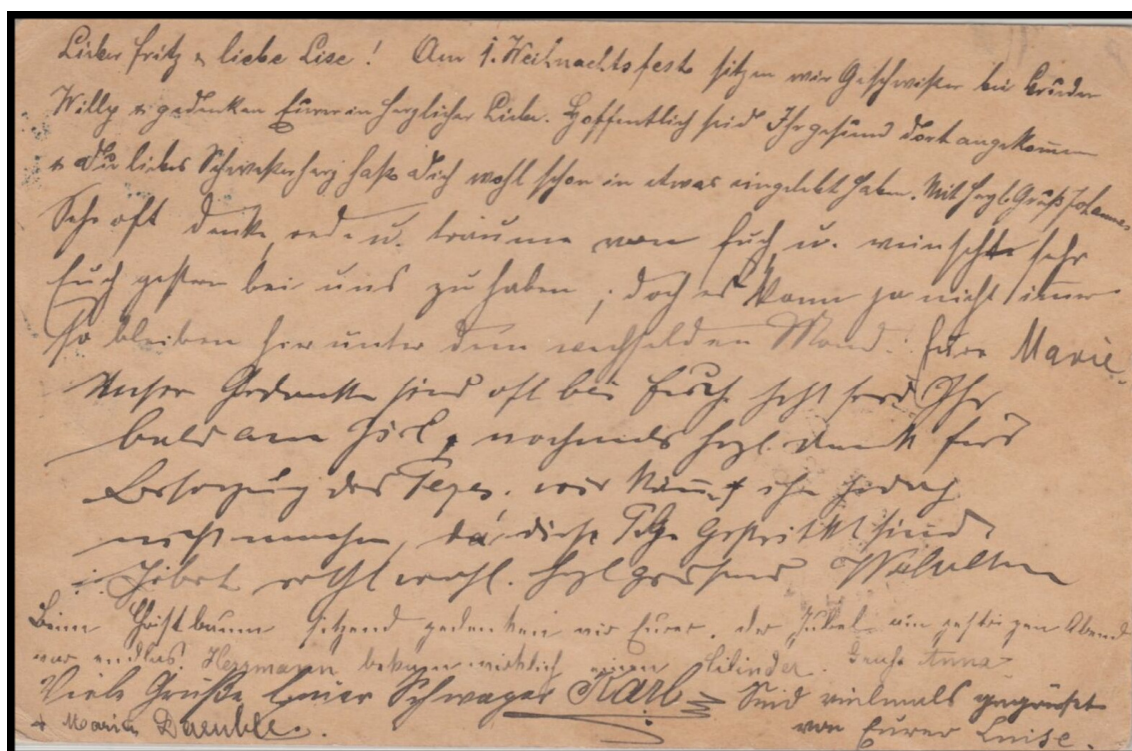 Lieber Fritz & liebe Lise! Am 1. Weihnachtsfest sitzen wir Geschwister bei Bruder
Willy & gedenken Eurer in herzlicher Liebe. Hoffentlich seid Ihr gesund dort angekommen
& Du liebes Schwesterherz hast Dich wohl schon in etwas eingelebt haben. Mit herzl. Gruß Johannes
Sehr oft denke, rede u. träume von Euch u. wünschte sehr
Euch gestern bei uns zu haben, doch es kann ja nicht immer
so bleiben hier unter dem wechselden Mond. Eure Marie.
Unsre Gedanken sind oft bei Euch jetzt seid Ihr
bald am Ziel, nochmals herzl. Dank fürs
Besorgung des wir ihn jedoch
nicht machen, da diese sind
wohl. Herzl grüssend
Beim Christbaum sitzend gedenken wir Eurer. der Jubel am gestrigen Abend
war endlos. Hermann bekam wirklich einen Cilinder. Gruß Anna
Viele Grüße Euer Schwager Karl Seid vielmals gegrüsst
+ Marie von Eurer Luise.